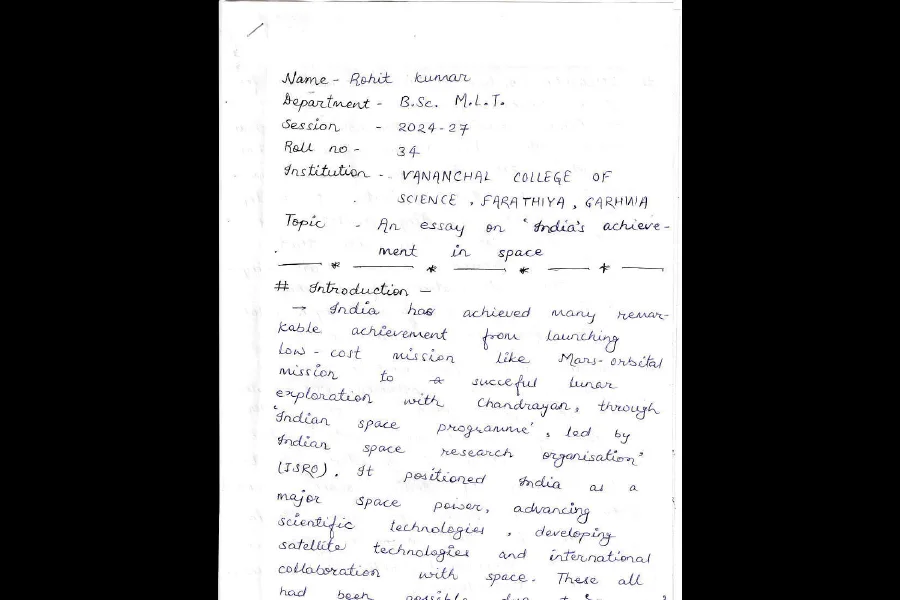 Name - Rohit Kumar
Department - B.Sc. M.L.T.
Session - 2024-27
Roll no - 34
Institution - VANANCHAL COLLEGE OF
SCIENCE, FARATHIYA, GARHWA
Topic - An essay on 'India's achieve-
ment in space
# Introduction -
→ India has achieved many remar-
kable achievement from launching
low-cost mission like Mars-orbital
mission to a succeful lunar
exploration with Chandrayan, through
'Indian space programme', led by
Indian space research organisation"
(ISRO). It positioned India as a
major space power, advancing
scientific technologies, developing
satellite technologies and international
collaboration with space. These all
had been possible due